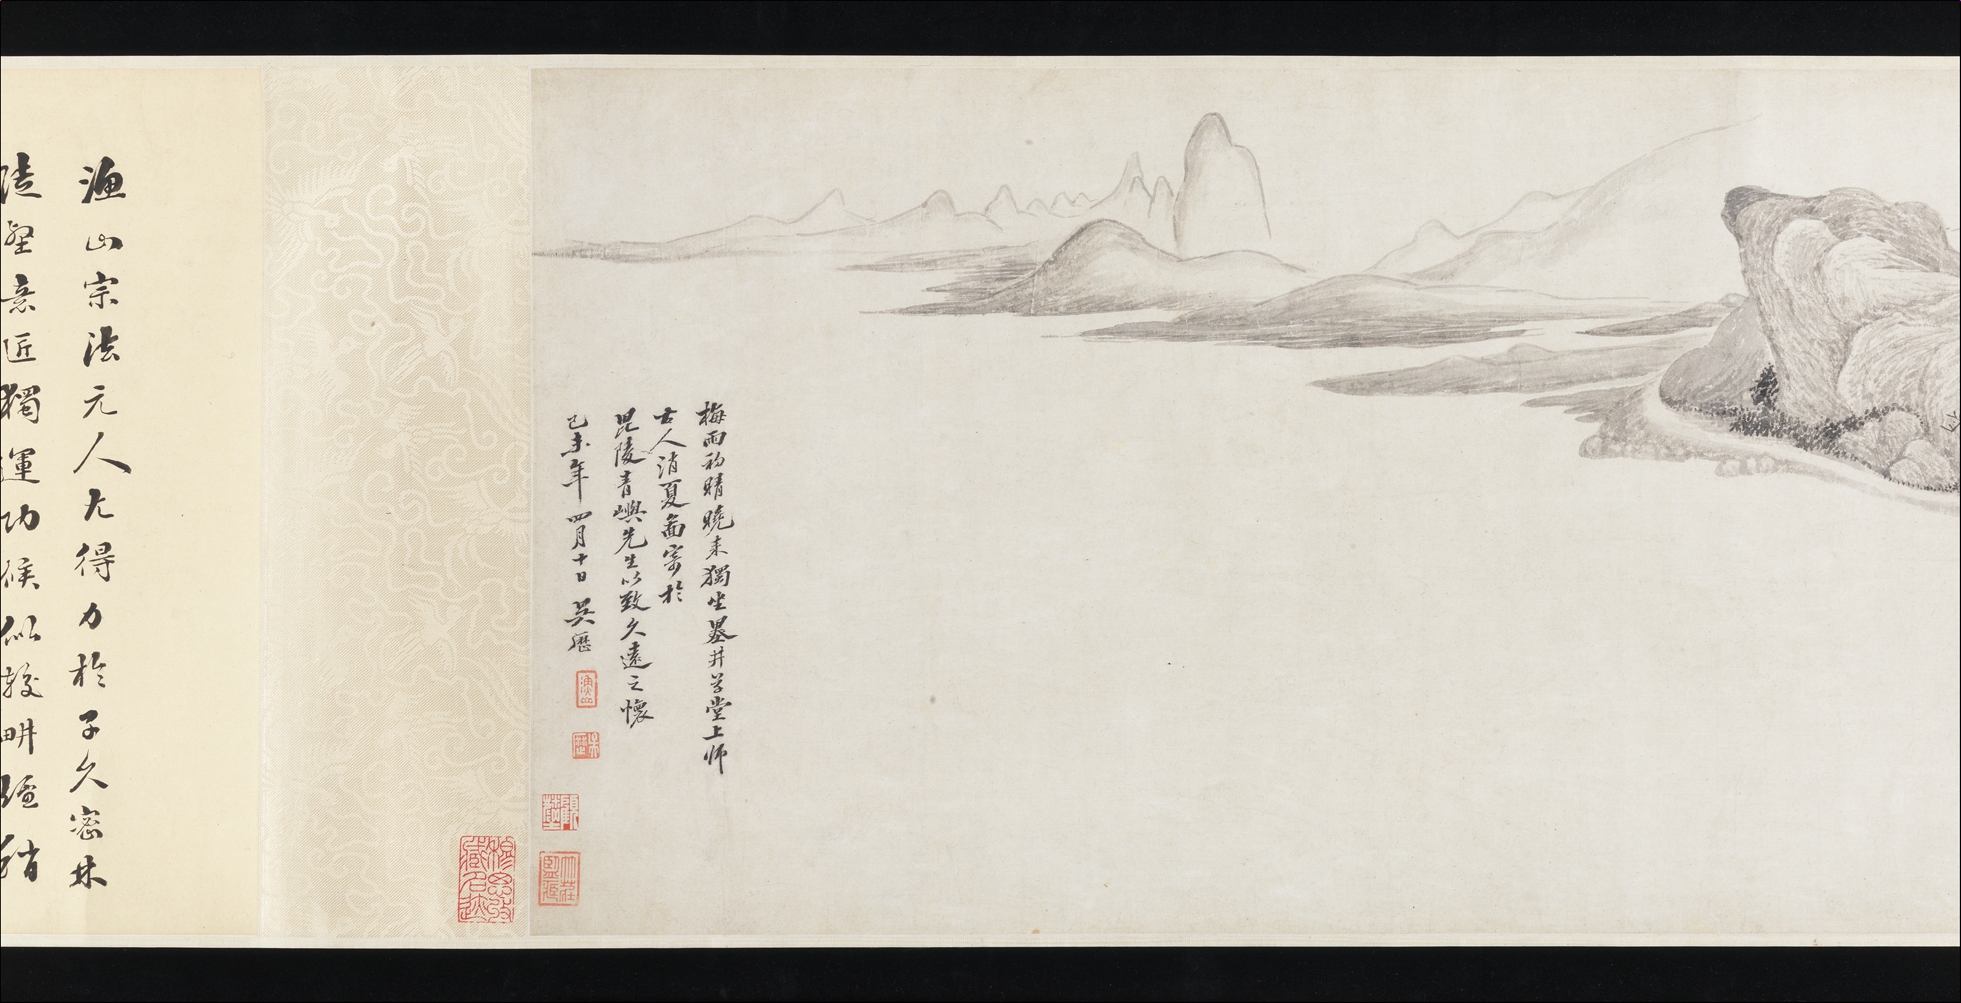 梅雨初晴曉來獨坐墨井草堂上師
古人消夏圖寄於
毘陵青嶼先生以致久遠之懷
己未年四月十日 吳歷
漁山
穆思攸
藏名迹
漁山宗法元人尤得力於子久密林
陡壑意匠獨運功候似較畊煙稍